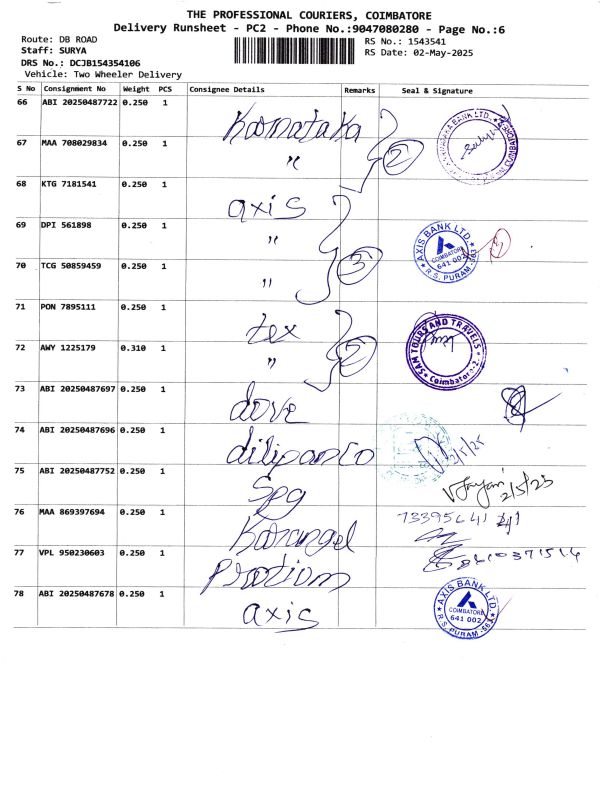 THE PROFESSIONAL COURIERS, COIMBATORE
Delivery Runsheet - PC2 - Phone No.:9047080280 - Page No.:6
Route: DB ROAD
RS No.: 1543541
Staff: SURYA
RS Date: 02-May-2025
DRS No.: DCJB154354106
Vehicle: Two Wheeler Delivery
S No Consignment No Weight PCS Consignee Details Remarks Seal & Signature
66 ABI 20250487722 0.250 1 Karnataka
67 MAA 708029834 0.250 1 " 2
68 KTG 7181541 0.250 1 axis
69 DPI 561898 0.250 1 " AXIS BANK LTD. COIMBATORE 641 002 R.S. PURAM
70 TCG 50859459 0.250 1 " 3
71 PON 7895111 0.250 1 tex
72 AWY 1225179 0.310 1 " 2 SAM TOURS AND TRAVELS Coimbatore-2.
73 ABI 20250487697 0.250 1 dove
74 ABI 20250487696 0.250 1 2/5/25
75 ABI 20250487752 0.250 1 Spg 2/5/25
76 MAA 869397694 0.250 1
77 VPL 950230603 0.250 1
78 ABI 20250487678 0.250 1 axis AXIS BANK LTD. COIMBATORE 641 002 R.S. PURAM